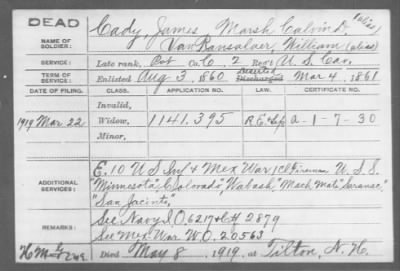 DEAD
Cady, James Marsh Calvin D. (alias)
NAME OF SOLDIER:
Van Ransalaer, William (alias)
SERVICE:
Late rank, Pvt Co. C, 2 Reg't U.S. Cav.
TERM OF SERVICE:
Enlisted Aug 3, 1860, Deserted Discharged Mar 4, 1861
DATE OF FILING. CLASS. APPLICATION NO. LAW. CERTIFICATE NO.
Invalid,
1919 Mar 22 Widow, 1141.395 a-1-7-30
Minor,
ADDITIONAL SERVICES:
E. 10 U S Inf & Mex War Fireman U.S.S.
"Minnesota, Colorado", Wabash, Mach. Mate
"San Jacinto,"
REMARKS:
See Navy S.O. 6217 2879
See Mex War W.O. 20563
Died May 8, 1919, at Tilton, N.H.